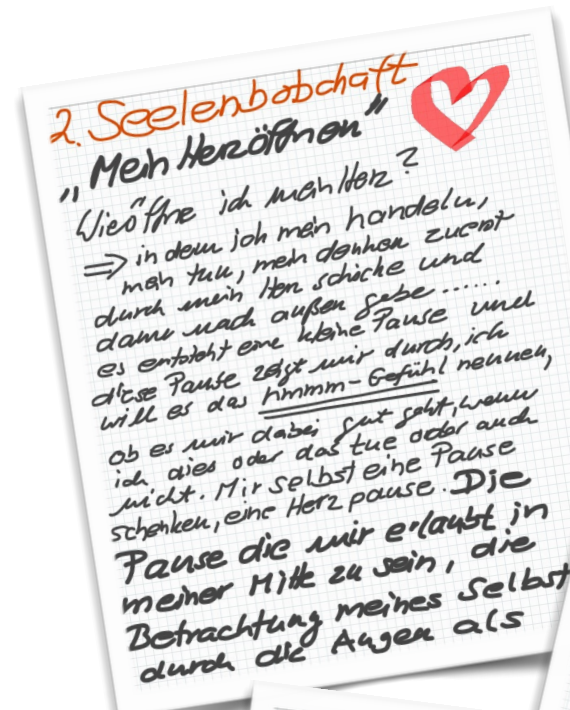 2. Seelenbotschaft
"Mein Herzöffnen"
Wie öffne ich mein Herz?
⇒ in dem ich mein handeln,
mein tun, mein denken zuerst
durch mein Herz schicke und
dann nach außen gebe ......
es entsteht eine kleine Pause und
diese Pause zeigt mir durch, ich
will es das hmmm-Gefühl nennen,
ob es mir dabei gut geht, wenn
ich dies oder das tue oder auch
nicht. Mir selbst eine Pause
schenken, eine Herz pause. Die
Pause die mir erlaubt in
meiner Mitte zu sein, die
Betrachtung meines Selbst
durch die Augen als